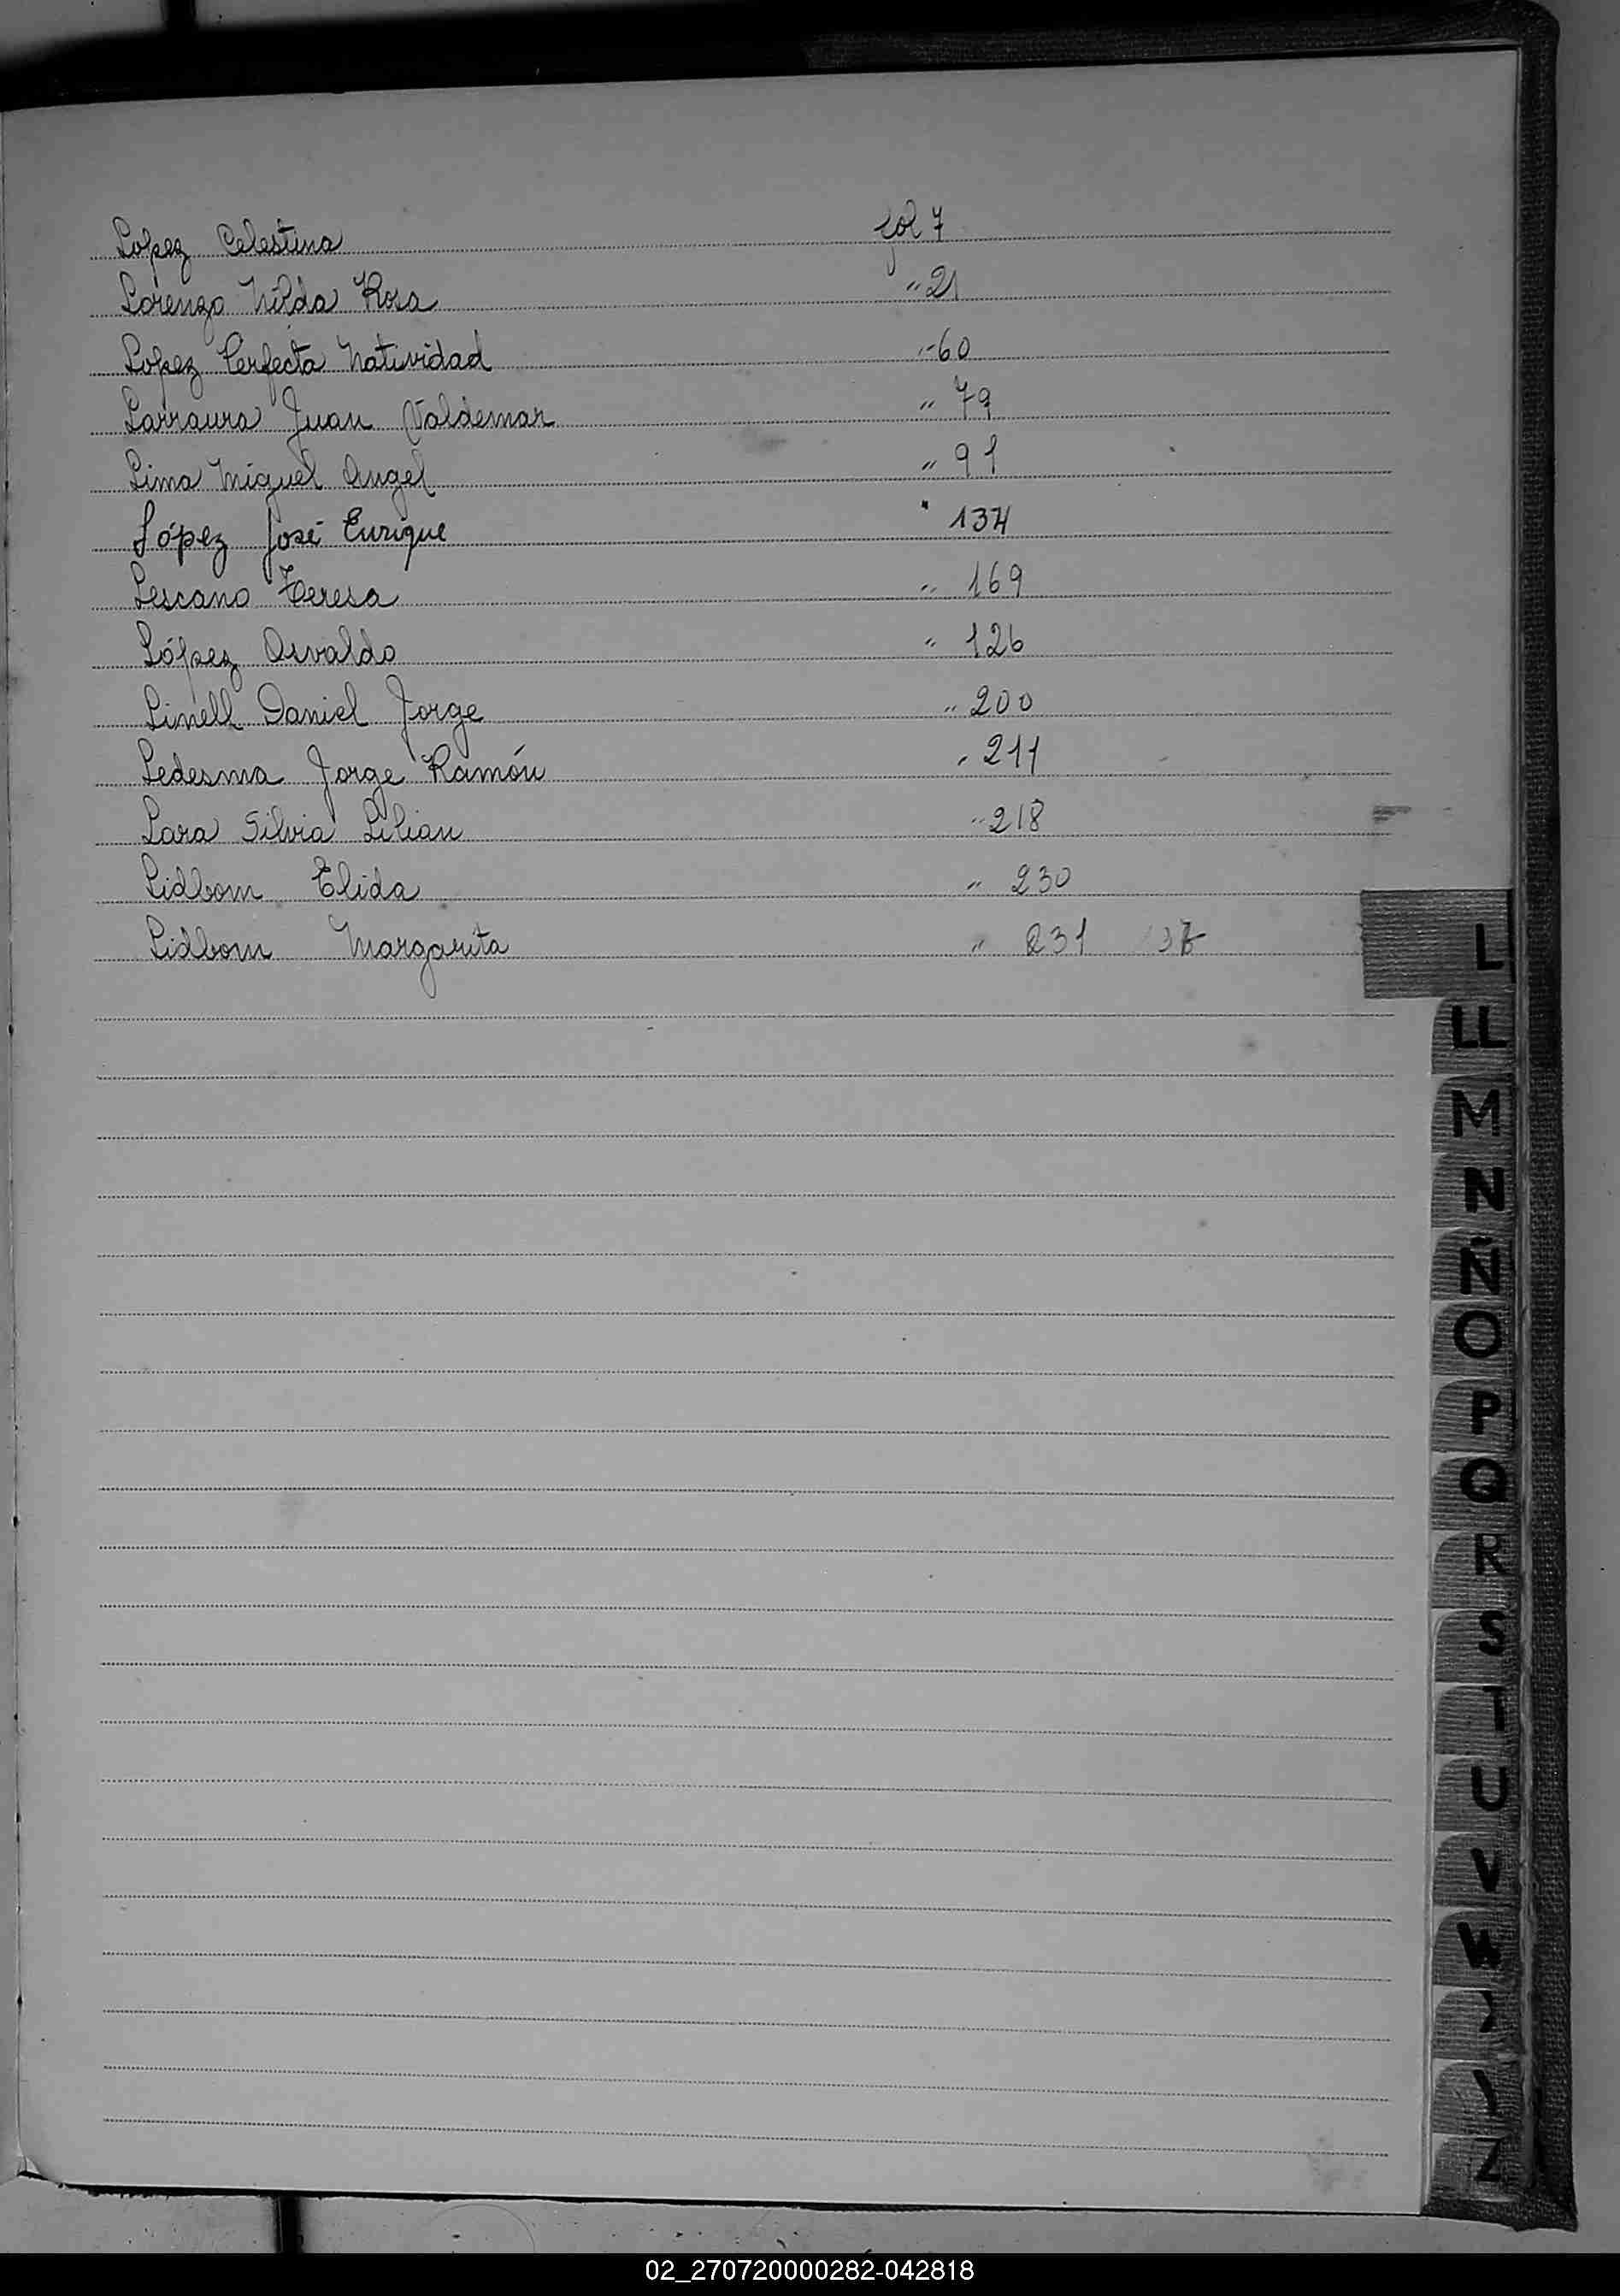 Lopez Celestina fol 7
Lorenzo Nilda Rosa " 21
Lopez Perfecta Natividad " 60
Larraura Juan Valdemar " 79
Lima Miguel Angel " 91
López José Enrique " 134
Lescano Teresa " 169
López Osvaldo " 126
Linell Daniel Jorge " 200
Ledesma Jorge Ramón " 211
Lara Silvia Lilian " 218
Lidbom Elida " 230
Lidbom Margarita " 231
L
LL
M
N
Ñ
O
P
Q
R
S
T
U
V
W
Z
02_270720000282-042818